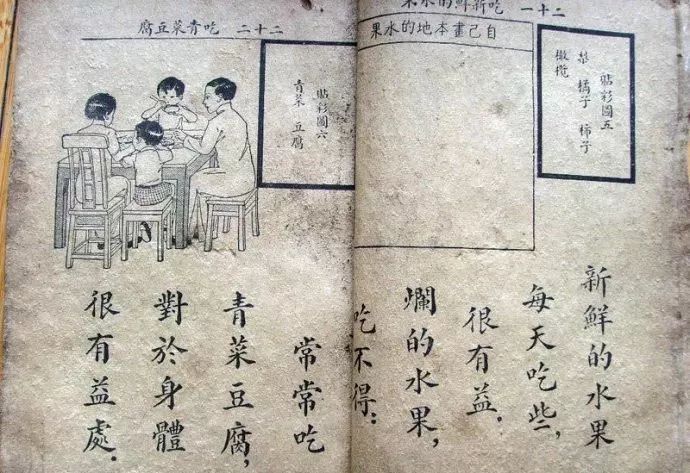 二十一 吃新鮮的水果
貼彩圖五
梨 橘子 柿子
橄欖
自己畫本地的水果
新鮮的水果
每天吃些,
很有益.
爛的水果,
吃不得;
二十二 吃青菜豆腐
貼彩圖六
青菜 豆腐
常常吃
青菜豆腐,
對於身體
很有益處.